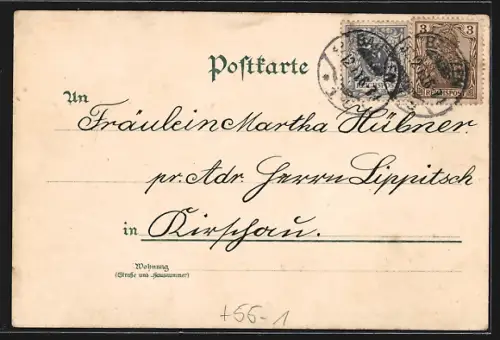 Postkarte
BAUTZEN
3
An
Fräulein Martha Hübner
pr. Adr. Herrn Lippitsch
in Kirschau.
Wohnung
(Straße und Hausnummer)
+56-1